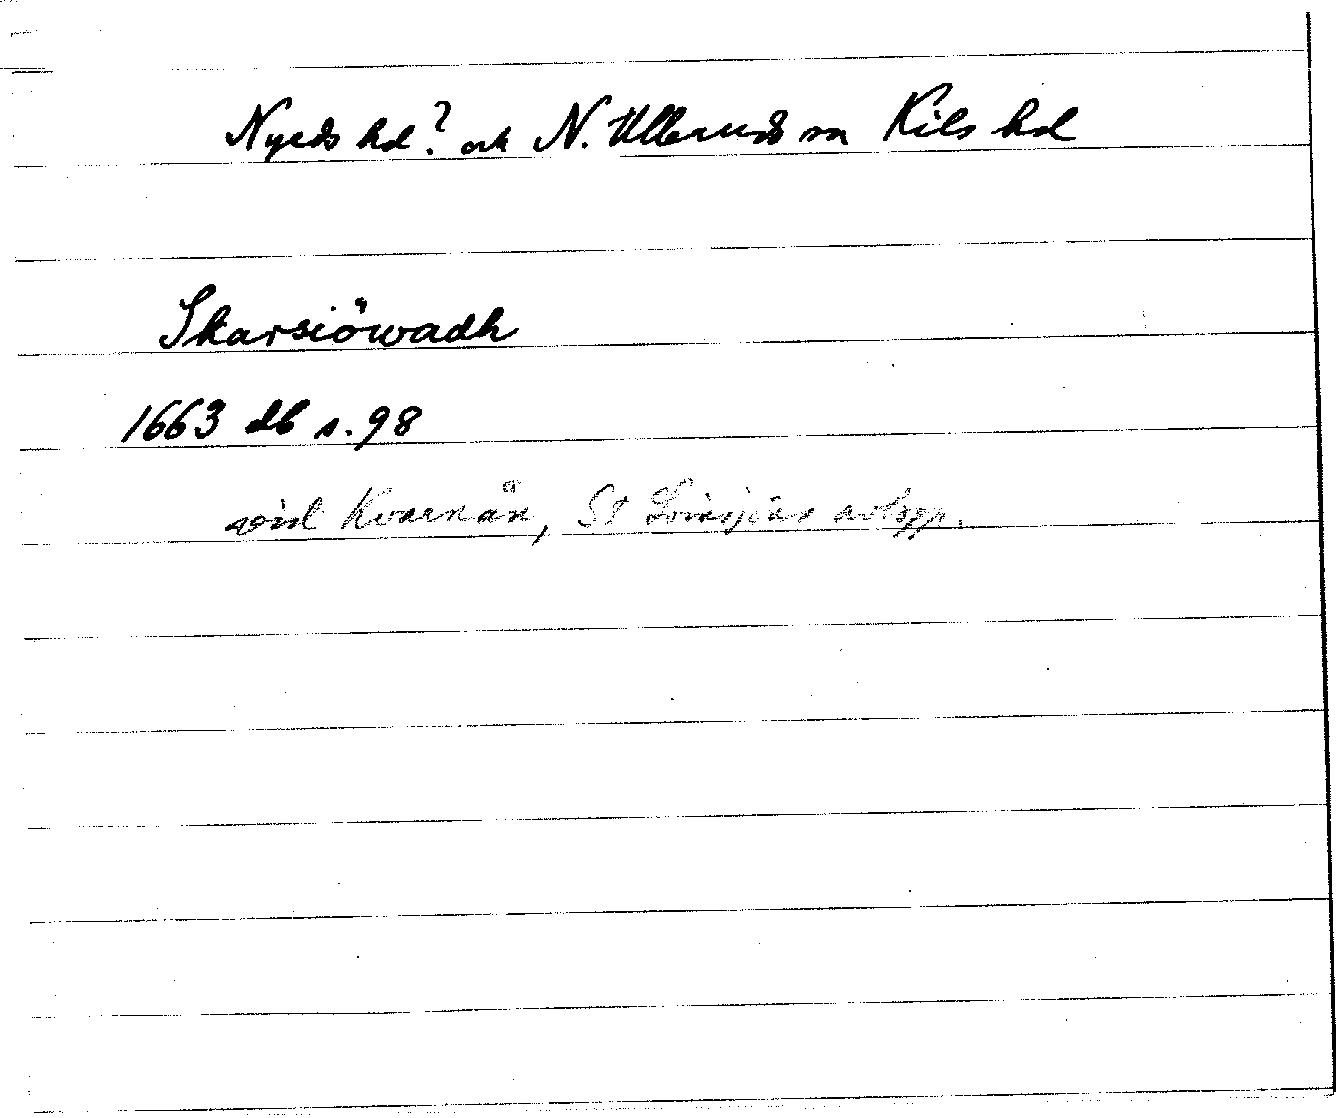 Nyeds hd? och N. Ulleruds sn Kils hd
Skarsiöwadh
1663 db s. 98
vid Kvarnån, St Örsjöns avlopp.